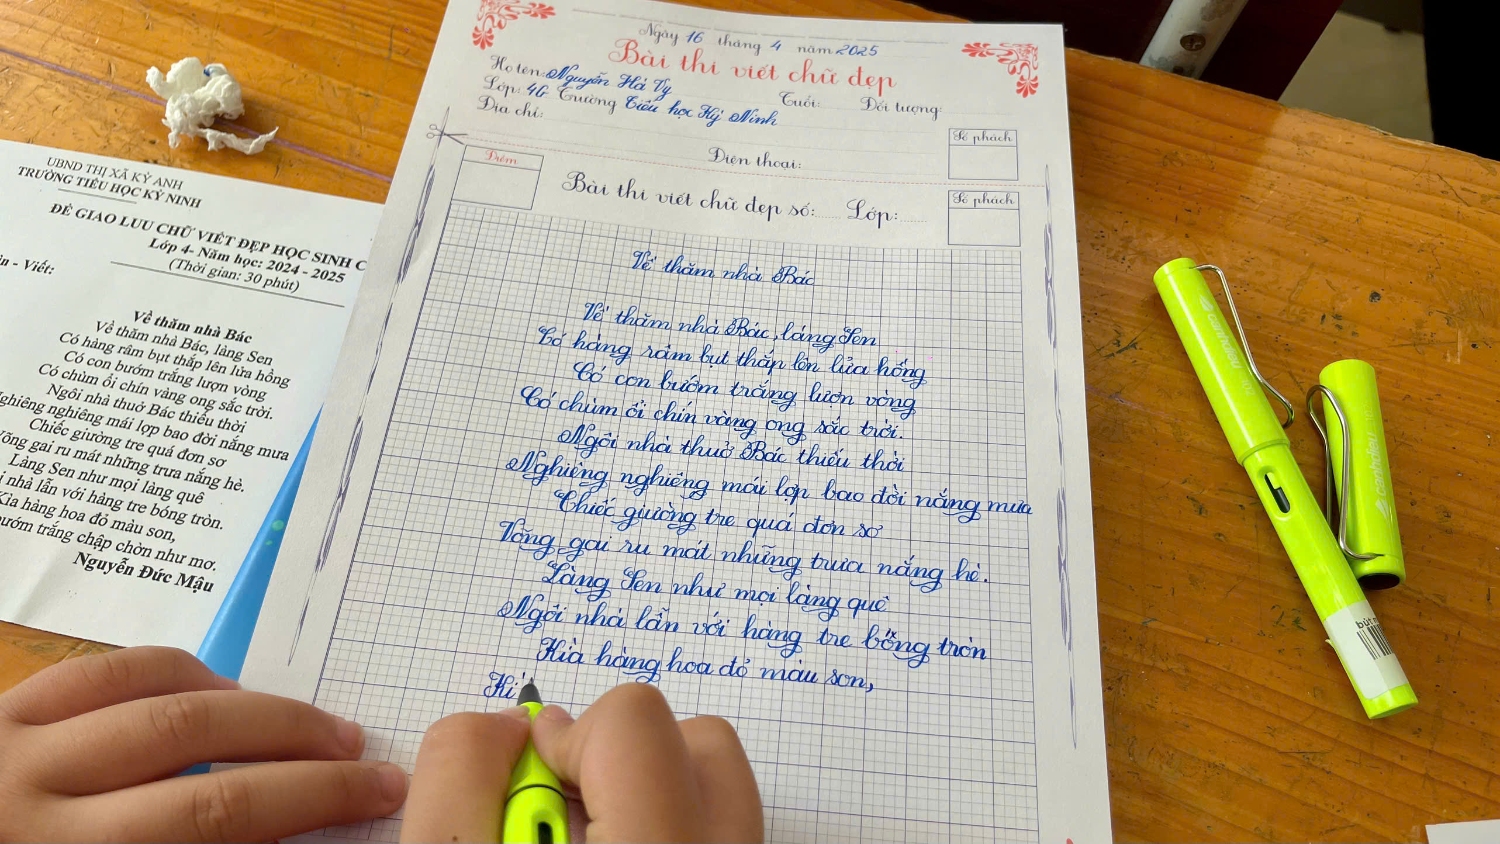 UBND THỊ XÃ KỲ ANH
TRƯỜNG TIỂU HỌC KỲ NINH
ĐỀ GIAO LƯU CHỮ VIẾT ĐẸP HỌC SINH C
Lớp 4- Năm học: 2024 - 2025
(Thời gian: 30 phút)
- Viết:
Về thăm nhà Bác
Về thăm nhà Bác, làng Sen
Có hàng râm bụt thắp lên lửa hồng
Có con bướm trắng lượn vòng
Có chùm ổi chín vàng ong sắc trời.
Ngôi nhà thuở Bác thiếu thời
nghiêng mái lợp bao đời nắng mưa
Chiếc giường tre quá đơn sơ
gai ru mát những trưa nắng hè.
Làng Sen như mọi làng quê
nhà lẫn với hàng tre bóng tròn.
Kìa hàng hoa đỏ màu son,
bướm trắng chập chờn như mơ.
Nguyễn Đức Mậu
Ngày 16 tháng 4 năm 2025
Bài thi viết chữ đẹp
Họ tên: Nguyễn Hà Vy
Lớp: 4G Trường Tiểu học Kỳ Ninh Tuổi: Đối tượng:
Địa chỉ:
Số phách
Điện thoại:
Điểm
Bài thi viết chữ đẹp số: Lớp:
Số phách
Về thăm nhà Bác
Về thăm nhà Bác, làng Sen
Có hàng râm bụt thắp lên lửa hồng
Có con bướm trắng lượn vòng
Có chùm ổi chín vàng ong sắc trời.
Ngôi nhà thuở Bác thiếu thời
Nghiêng nghiêng mái lợp bao đời nắng mưa
Chiếc giường tre quá đơn sơ
Võng gai ru mát những trưa nắng hè.
Làng Sen như mọi làng quê
Ngôi nhà lẫn với hàng tre bóng tròn
Kìa hàng hoa đỏ màu son,
Kì